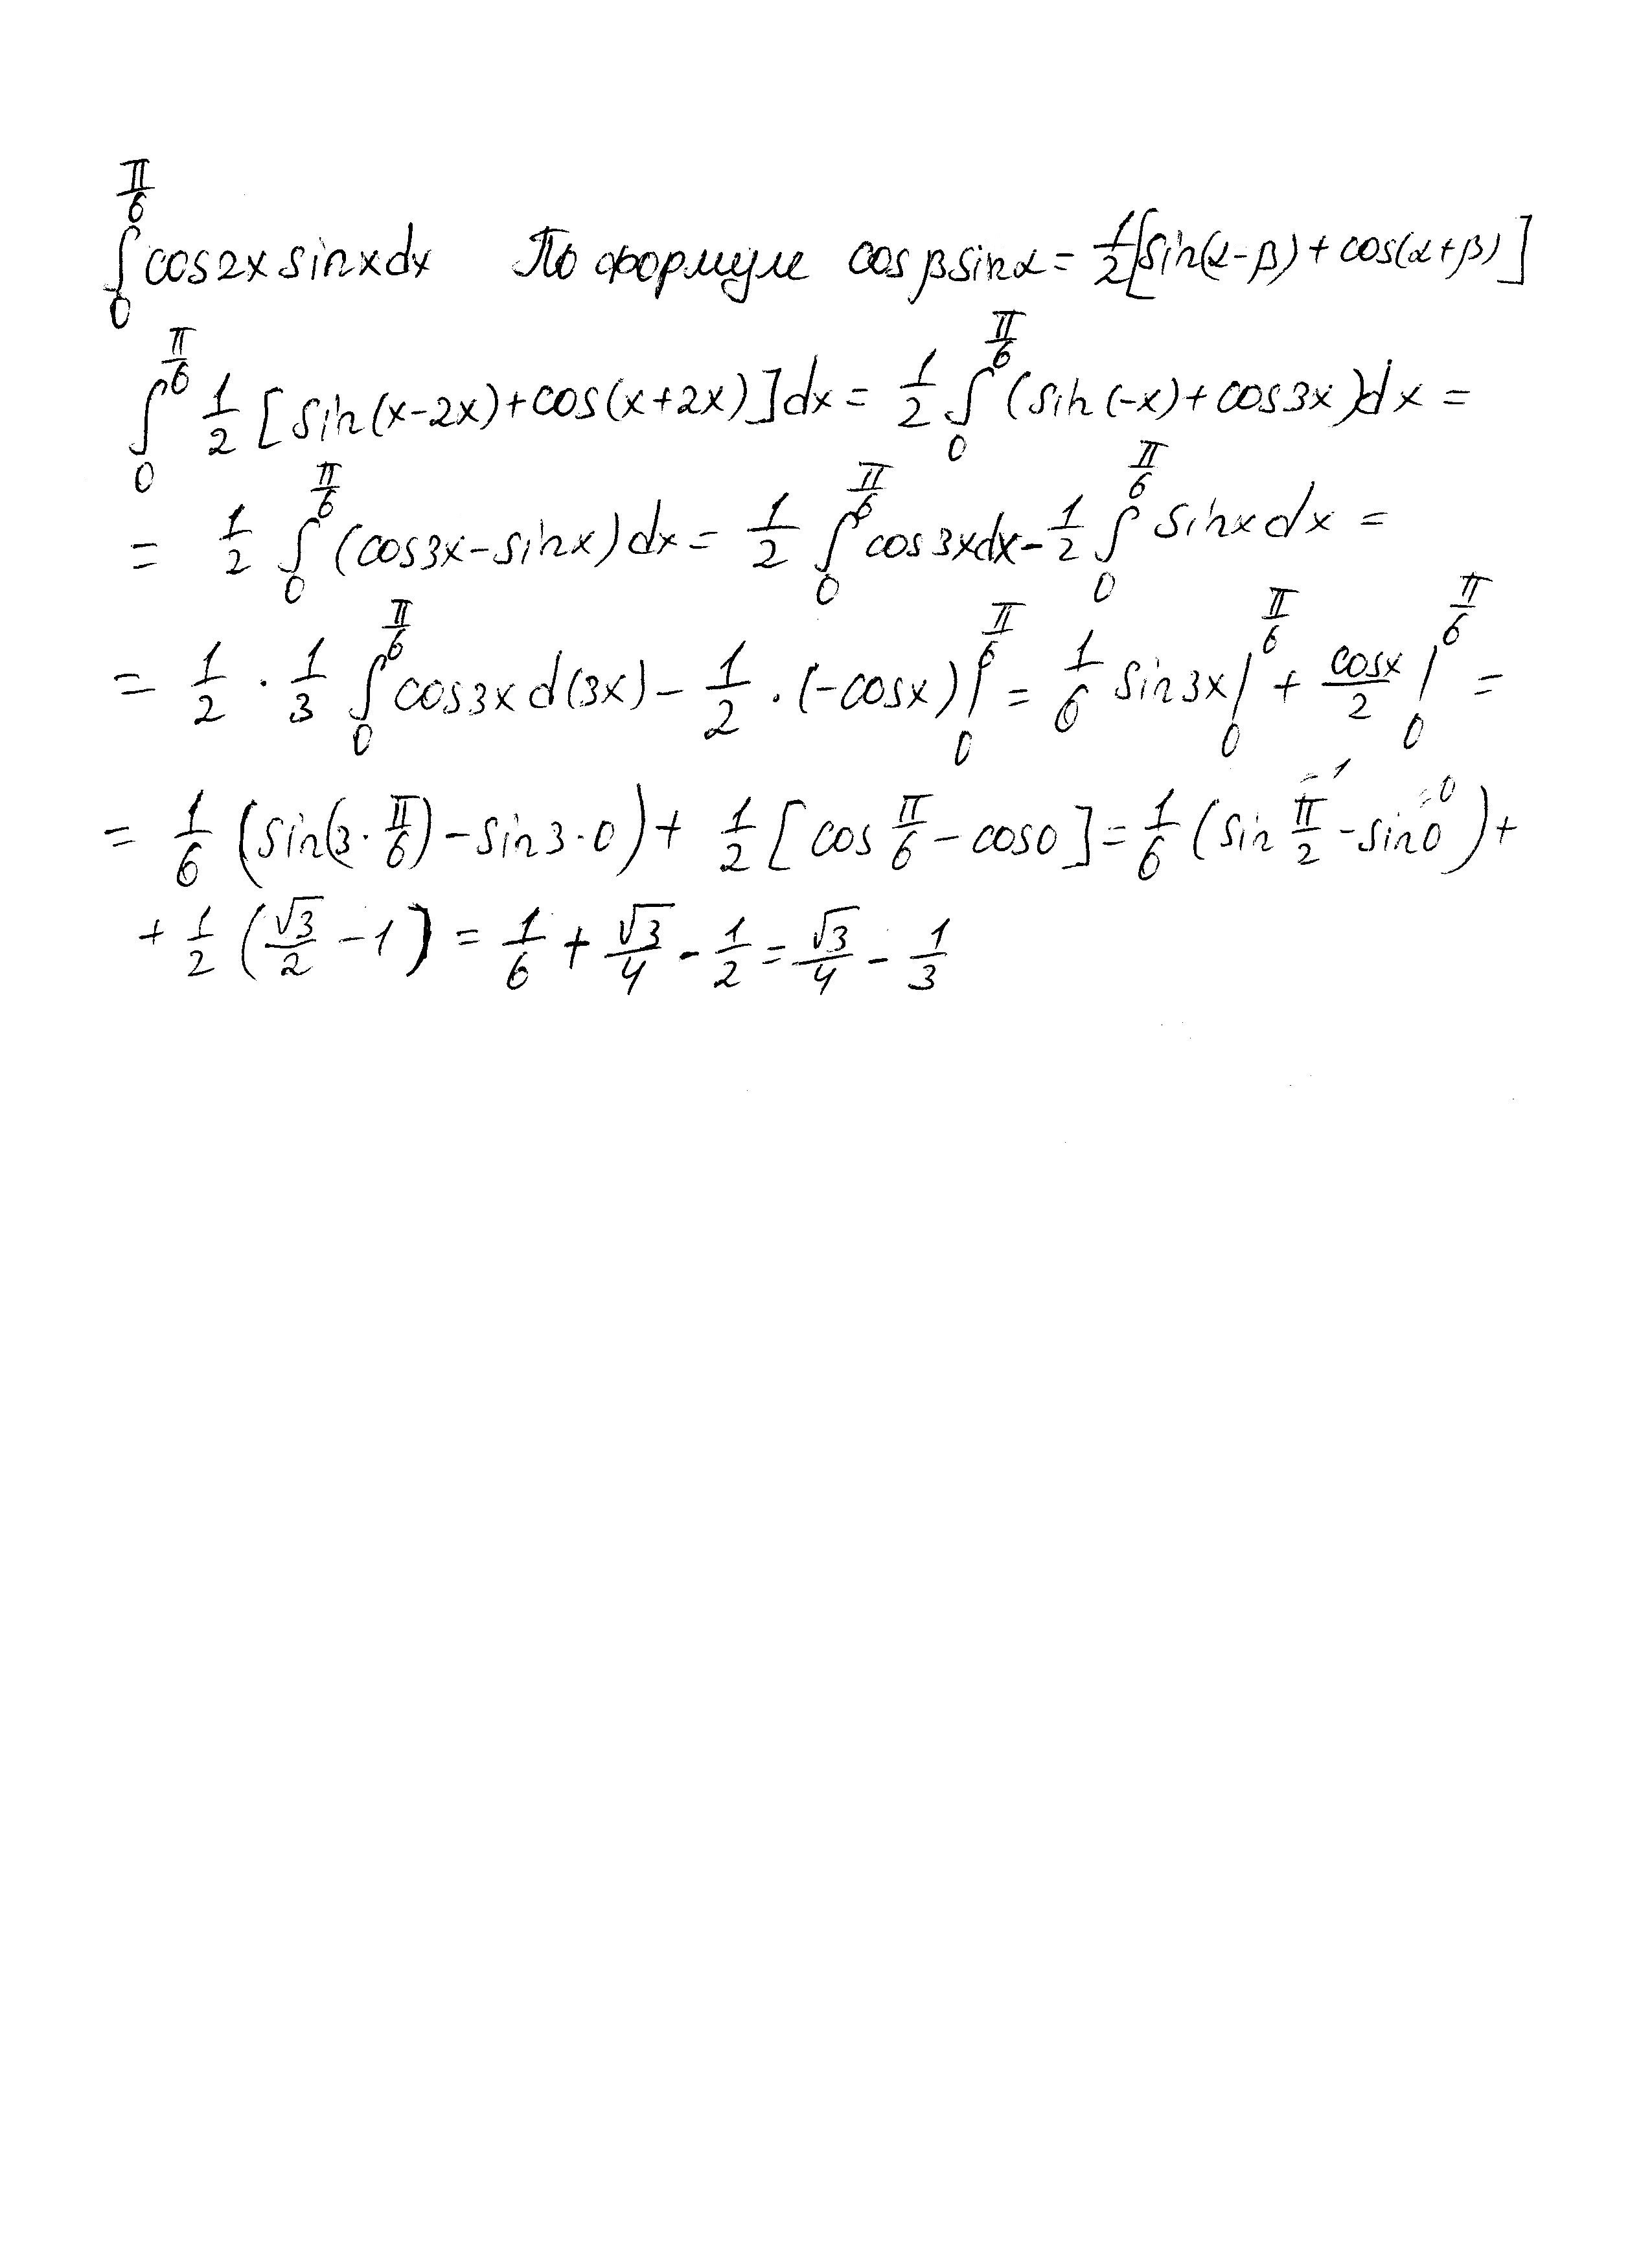 ∫₀^(π/6) cos2x sinxdx По формуле cosβsinα = 1/2[sin(α-β) + cos(α+β)]
∫₀^(π/6) 1/2 [sin(x-2x)+cos(x+2x)]dx = 1/2 ∫₀^(π/6) (sin(-x)+cos3x)dx =
= 1/2 ∫₀^(π/6) (cos3x-sinx)dx = 1/2 ∫₀^(π/6) cos3xdx - 1/2 ∫₀^(π/6) sinxdx =
= 1/2 · 1/3 ∫₀^(π/6) cos3x d(3x) - 1/2 · (-cosx)|₀^(π/6) = 1/6 sin3x|₀^(π/6) + cosx/2 |₀^(π/6) =
= 1/6 (sin(3·π/6) - sin3·0) + 1/2 [cos π/6 - cos0] = 1/6 (sin π/2 ⁼¹ - sin0 ⁼⁰) +
+ 1/2 (√3/2 - 1) = 1/6 + √3/4 - 1/2 = √3/4 - 1/3